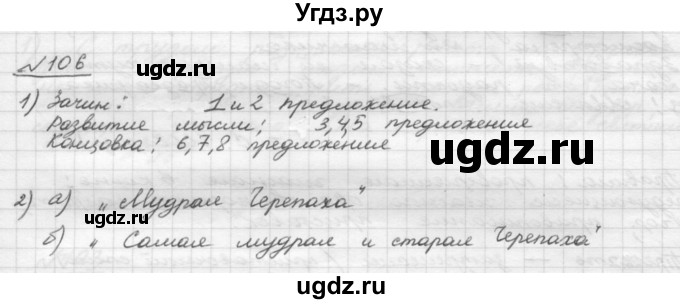 Угдз.ру
№106
ugdz.ru
1) Зачин: 1 и 2 предложение.
Развитие мысли: 3,4,5 предложения
Концовка: 6,7,8 предложения
ugdz.ru
2) а) "Мудрая Черепаха"
ugdz.ru
б) "Самая мудрая и старая Черепаха"
ugdz.ru